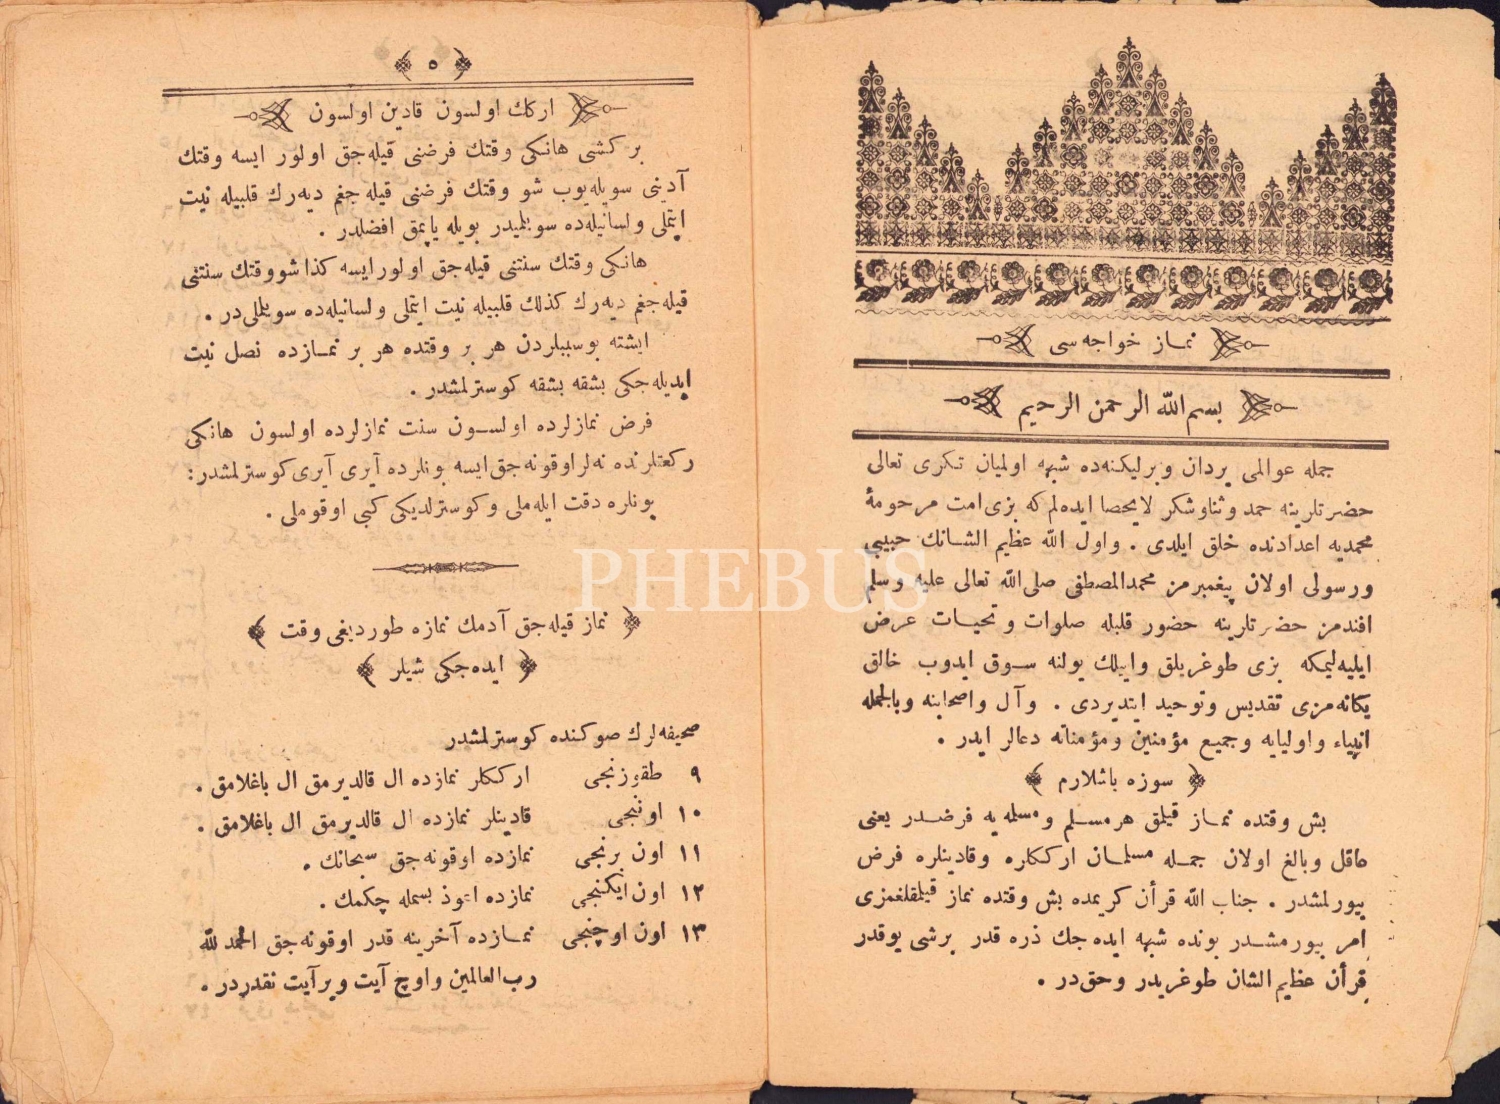 نماز خواجه‌سی
بسم الله الرحمن الرحيم
جمله عوالمی يردان وبرلیکنه‌ده شبهه اولمیان تکری تعالی
حضرتلرینه حمد وثنا وشکر لایحصا ایده‌لم که بزی امت مرحومهٔ
محمدیه اعدادنده خلق ایلدی . واول الله عظیم الشانک حبیبی
ورسولی اولان پیغمبرمز محمدالمصطفی صلی الله تعالی علیه وسلم
افندمز حضرتلرینه حضور قلبله صلوات وتحیات عرض
ایلیه‌لیمکه بزی طوغریلق وایلك یولنه سوق ایدوب خالق
یکانه‌مزی تقدیس وتوحید ایتدیردی . وآل واصحابنه وبالجمله
انبیاء واولیایه وجمیع مؤمنین ومؤمناته دعالر ایدر .
سوزه باشلارم
بش وقتده نماز قیلمق هرمسلم ومسلمه یه فرضدر یعنی
عاقل وبالغ اولان جمله مسلمان ارککلره وقادینلره فرض
بیورلمشدر . جناب الله قرأن کریمده بش وقتده نماز قیلمقلغمزی
امر بیورمشدر بونده شبهه ایده‌جك ذره قدر برشی یوقدر
قرأن عظیم الشان طوغریدر وحق‌در .
٥
ارکك اولسون قادین اولسون
بر کشی هانکی وقتك فرضنی قیله‌جق اولور ایسه وقتك
آدینی سویله‌یوب شو وقتك فرضنی قیله‌جغم دیه‌رك قلبیله نیت
ایتملی ولسانیله‌ده سویلمیدر بویله یاپمق افضلدر .
هانکی وقتك سنتنی قیله‌جق اولورایسه کذا شووقتك سنتنی
قیله‌جغم دیه‌رك کذلك قلبیله نیت ایتملی ولسانیله‌ده سویلملی‌در .
ایشته بوسببلردن هر بر وقتده هر بر نمازده نصل نیت
ایدیله‌جکی بشقه بشقه کوسترلمشدر .
فرض نمازلرده اولسون سنت نمازلرده اولسون هانکی
رکعتلرنده نه‌لر اوقونه‌جق‌ایسه بونلرده آیری آیری کوسترلمشدر:
بونلره دقت ایله‌ملی وکوسترلدیکی کبی اوقوملی .
نماز قیله‌جق آدمك نمازه طوردیغی وقت
ایده‌جکی شیلر
صحیفه‌لرك صوکنده کوسترلمشدر
٩ طقوزنجی ارککلر نمازده ال قالدیرمق ال باغلامق .
١٠ اوننجی قادینلر نمازده ال قالدیرمق ال باغلامق .
١١ اون برنجی نمازده اوقونه‌جق سبحانك .
١٢ اون‌ایکنجی نمازده اعوذ بسمله چکمك .
١٣ اون اوچنجی نمازده آخرینه قدر اوقونه‌جق الحمد لله
رب العالمین واوچ آیت وبرآیت نقدردر .
PHEBUS